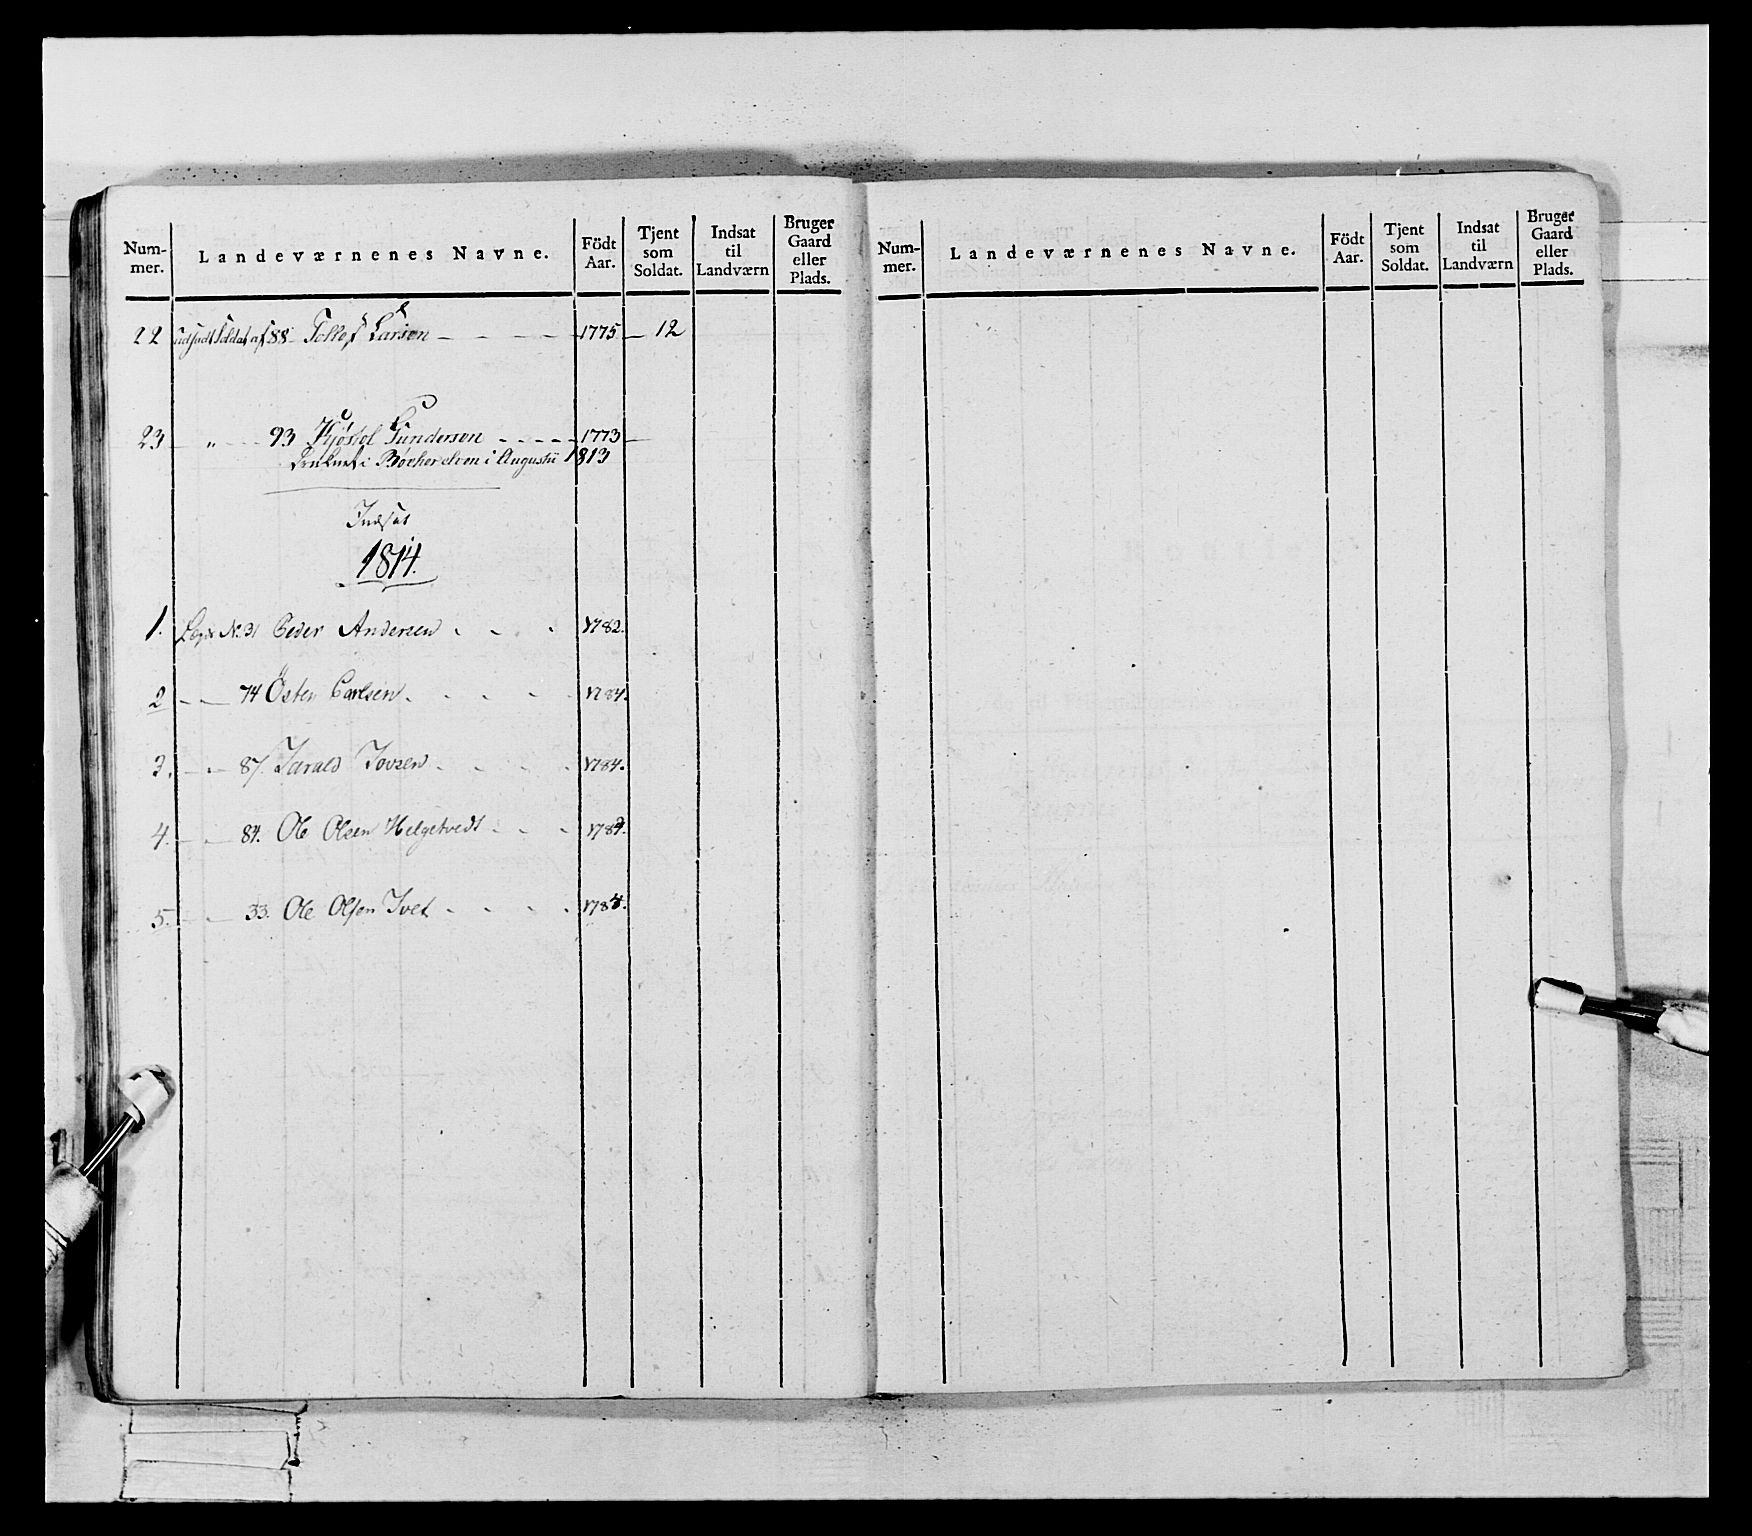 Num-
mer.
Landeværnenes Navne.
Födt
Aar.
Tjent
som
Soldat.
Indsat
til
Landværn
Bruger
Gaard
eller
Plads.
22 Soldat af 88 Larsen - - - - 1775 - 12
23 „ - - 93 Kjøstol Gunderson - - - - - 1773 -
Druknet i elven i Augustii 1813
Indsat
1814.
1. Lægd No. 31 Peder Andersen - - - 1782.
2 - - 74 Östen Carlsen - - - - 1784.
3. - - 87. Tarald Jovsen - - - - 1784.
4. - - 84. Ole Olsen Helgetvedt - - - 1784.
5. - - 33. Ole Olsen Tvet - - - - 1784.
Num-
mer.
Landeværnenes Navne.
Födt
Aar.
Tjent
som
Soldat.
Indsat
til
Landværn
Bruger
Gaard
eller
Plads.